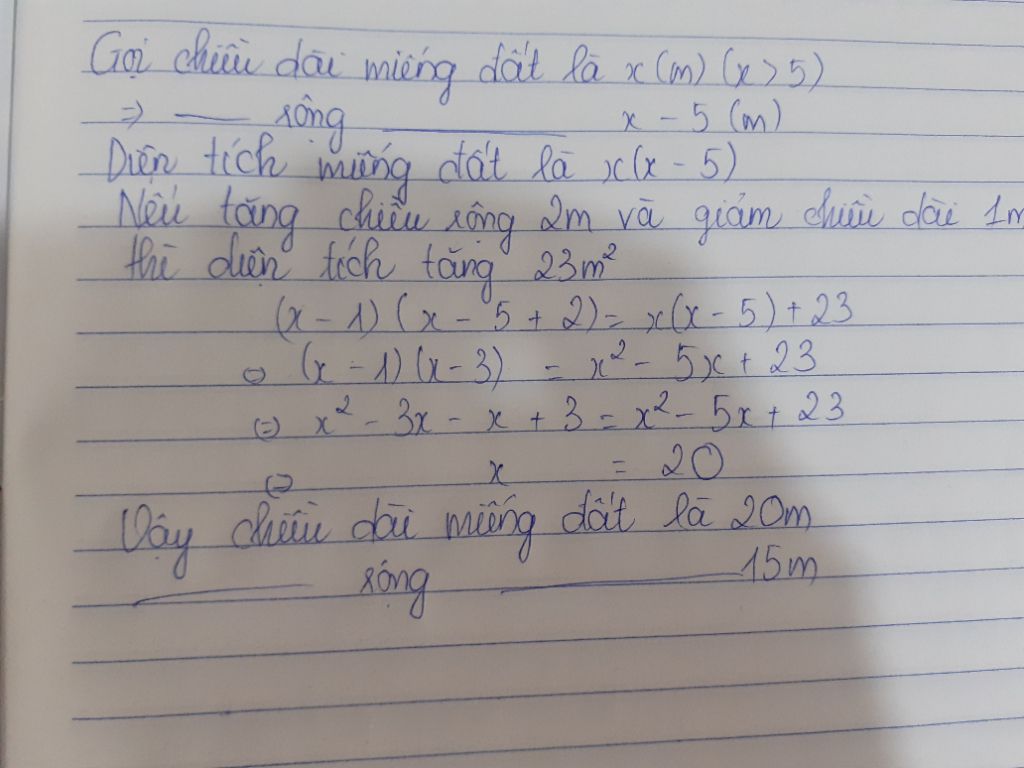 Gọi chiều dài miếng đất là x(m) (x > 5)
⇒ —— rộng ———— x - 5 (m)
Diện tích miếng đất là x(x - 5)
Nếu tăng chiều rộng 2m và giảm chiều dài 1m
thì diện tích tăng 23m²
(x - 1)(x - 5 + 2) = x(x - 5) + 23
⇔ (x - 1)(x - 3) = x² - 5x + 23
⇔ x² - 3x - x + 3 = x² - 5x + 23
⇔ x = 20
Vậy chiều dài miếng đất là 20m
———— rộng ———— 15m